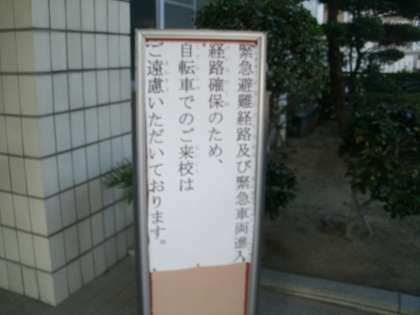 緊急避難経路及び緊急車両進入
経路確保のため、
自転車でのご来校は
ご遠慮いただいております。